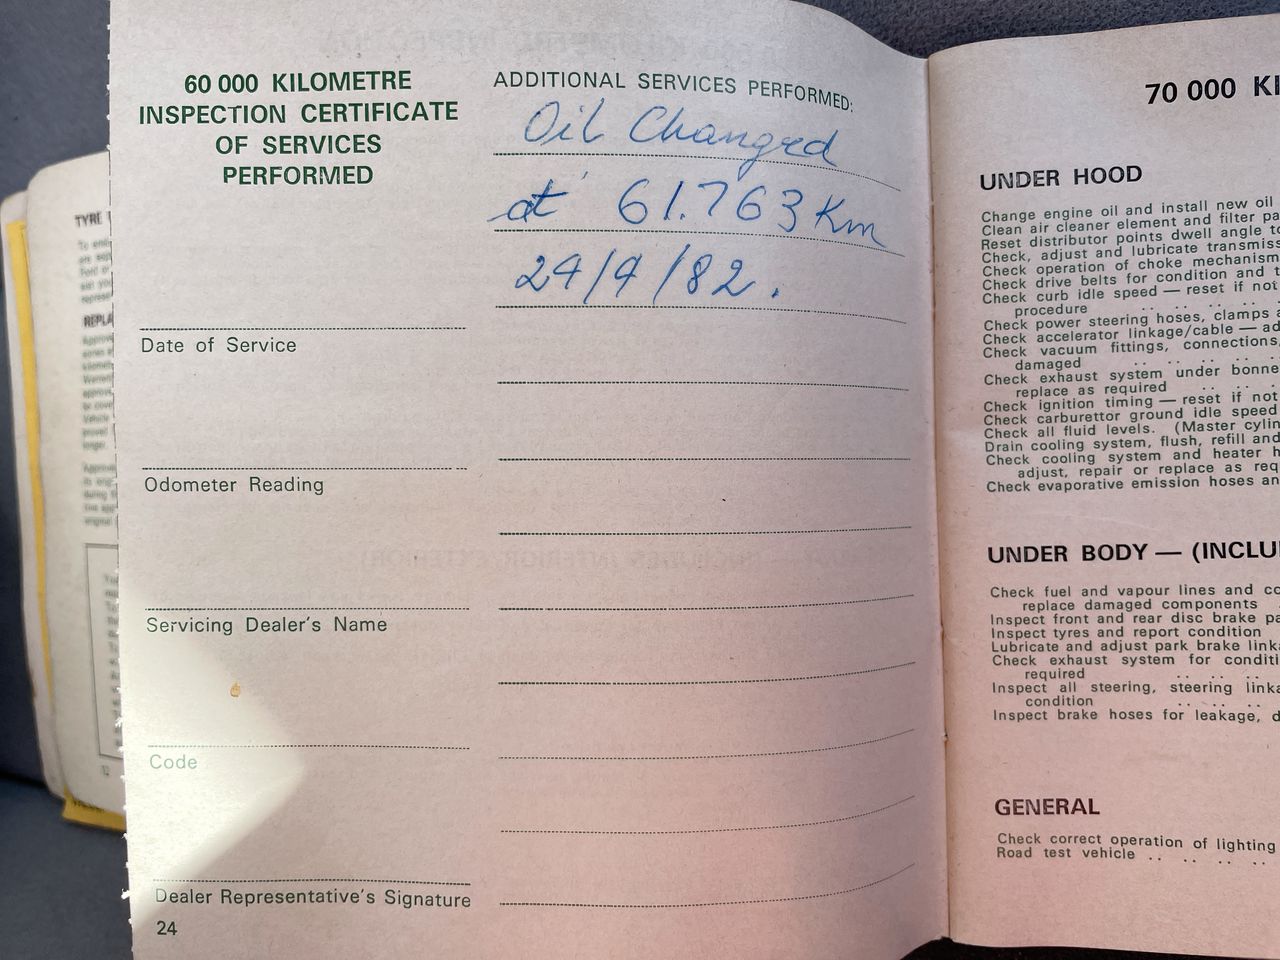 60 000 KILOMETRE
INSPECTION CERTIFICATE
OF SERVICES
PERFORMED
Date of Service
Odometer Reading
Servicing Dealer's Name
Code
Dealer Representative's Signature
24
ADDITIONAL SERVICES PERFORMED:
Oil Changed
at 61.763 Km
24/4/82.
70 000 KI
UNDER HOOD
Change engine oil and install new oil
Clean air cleaner element and filter pa
Reset distributor points dwell angle to
Check, adjust and lubricate transmiss
Check operation of choke mechanism
Check drive belts for condition and t
Check curb idle speed — reset if not
procedure .. .. .. ..
Check power steering hoses, clamps a
Check accelerator linkage/cable — ad
Check vacuum fittings, connections,
damaged .. .. .. .. ..
Check exhaust system under bonne
replace as required .. .. ..
Check ignition timing — reset if not
Check carburettor ground idle speed
Check all fluid levels. (Master cylin
Drain cooling system, flush, refill and
Check cooling system and heater h
adjust, repair or replace as req
Check evaporative emission hoses an
UNDER BODY — (INCLU
Check fuel and vapour lines and co
replace damaged components ..
Inspect front and rear disc brake pa
Inspect tyres and report condition
Lubricate and adjust park brake linka
Check exhaust system for conditi
required .. .. .. ..
Inspect all steering, steering linka
condition .. .. .. ..
Inspect brake hoses for leakage, d
GENERAL
Check correct operation of lighting
Road test vehicle .. .. .. ..
TYRE
REPLA
12